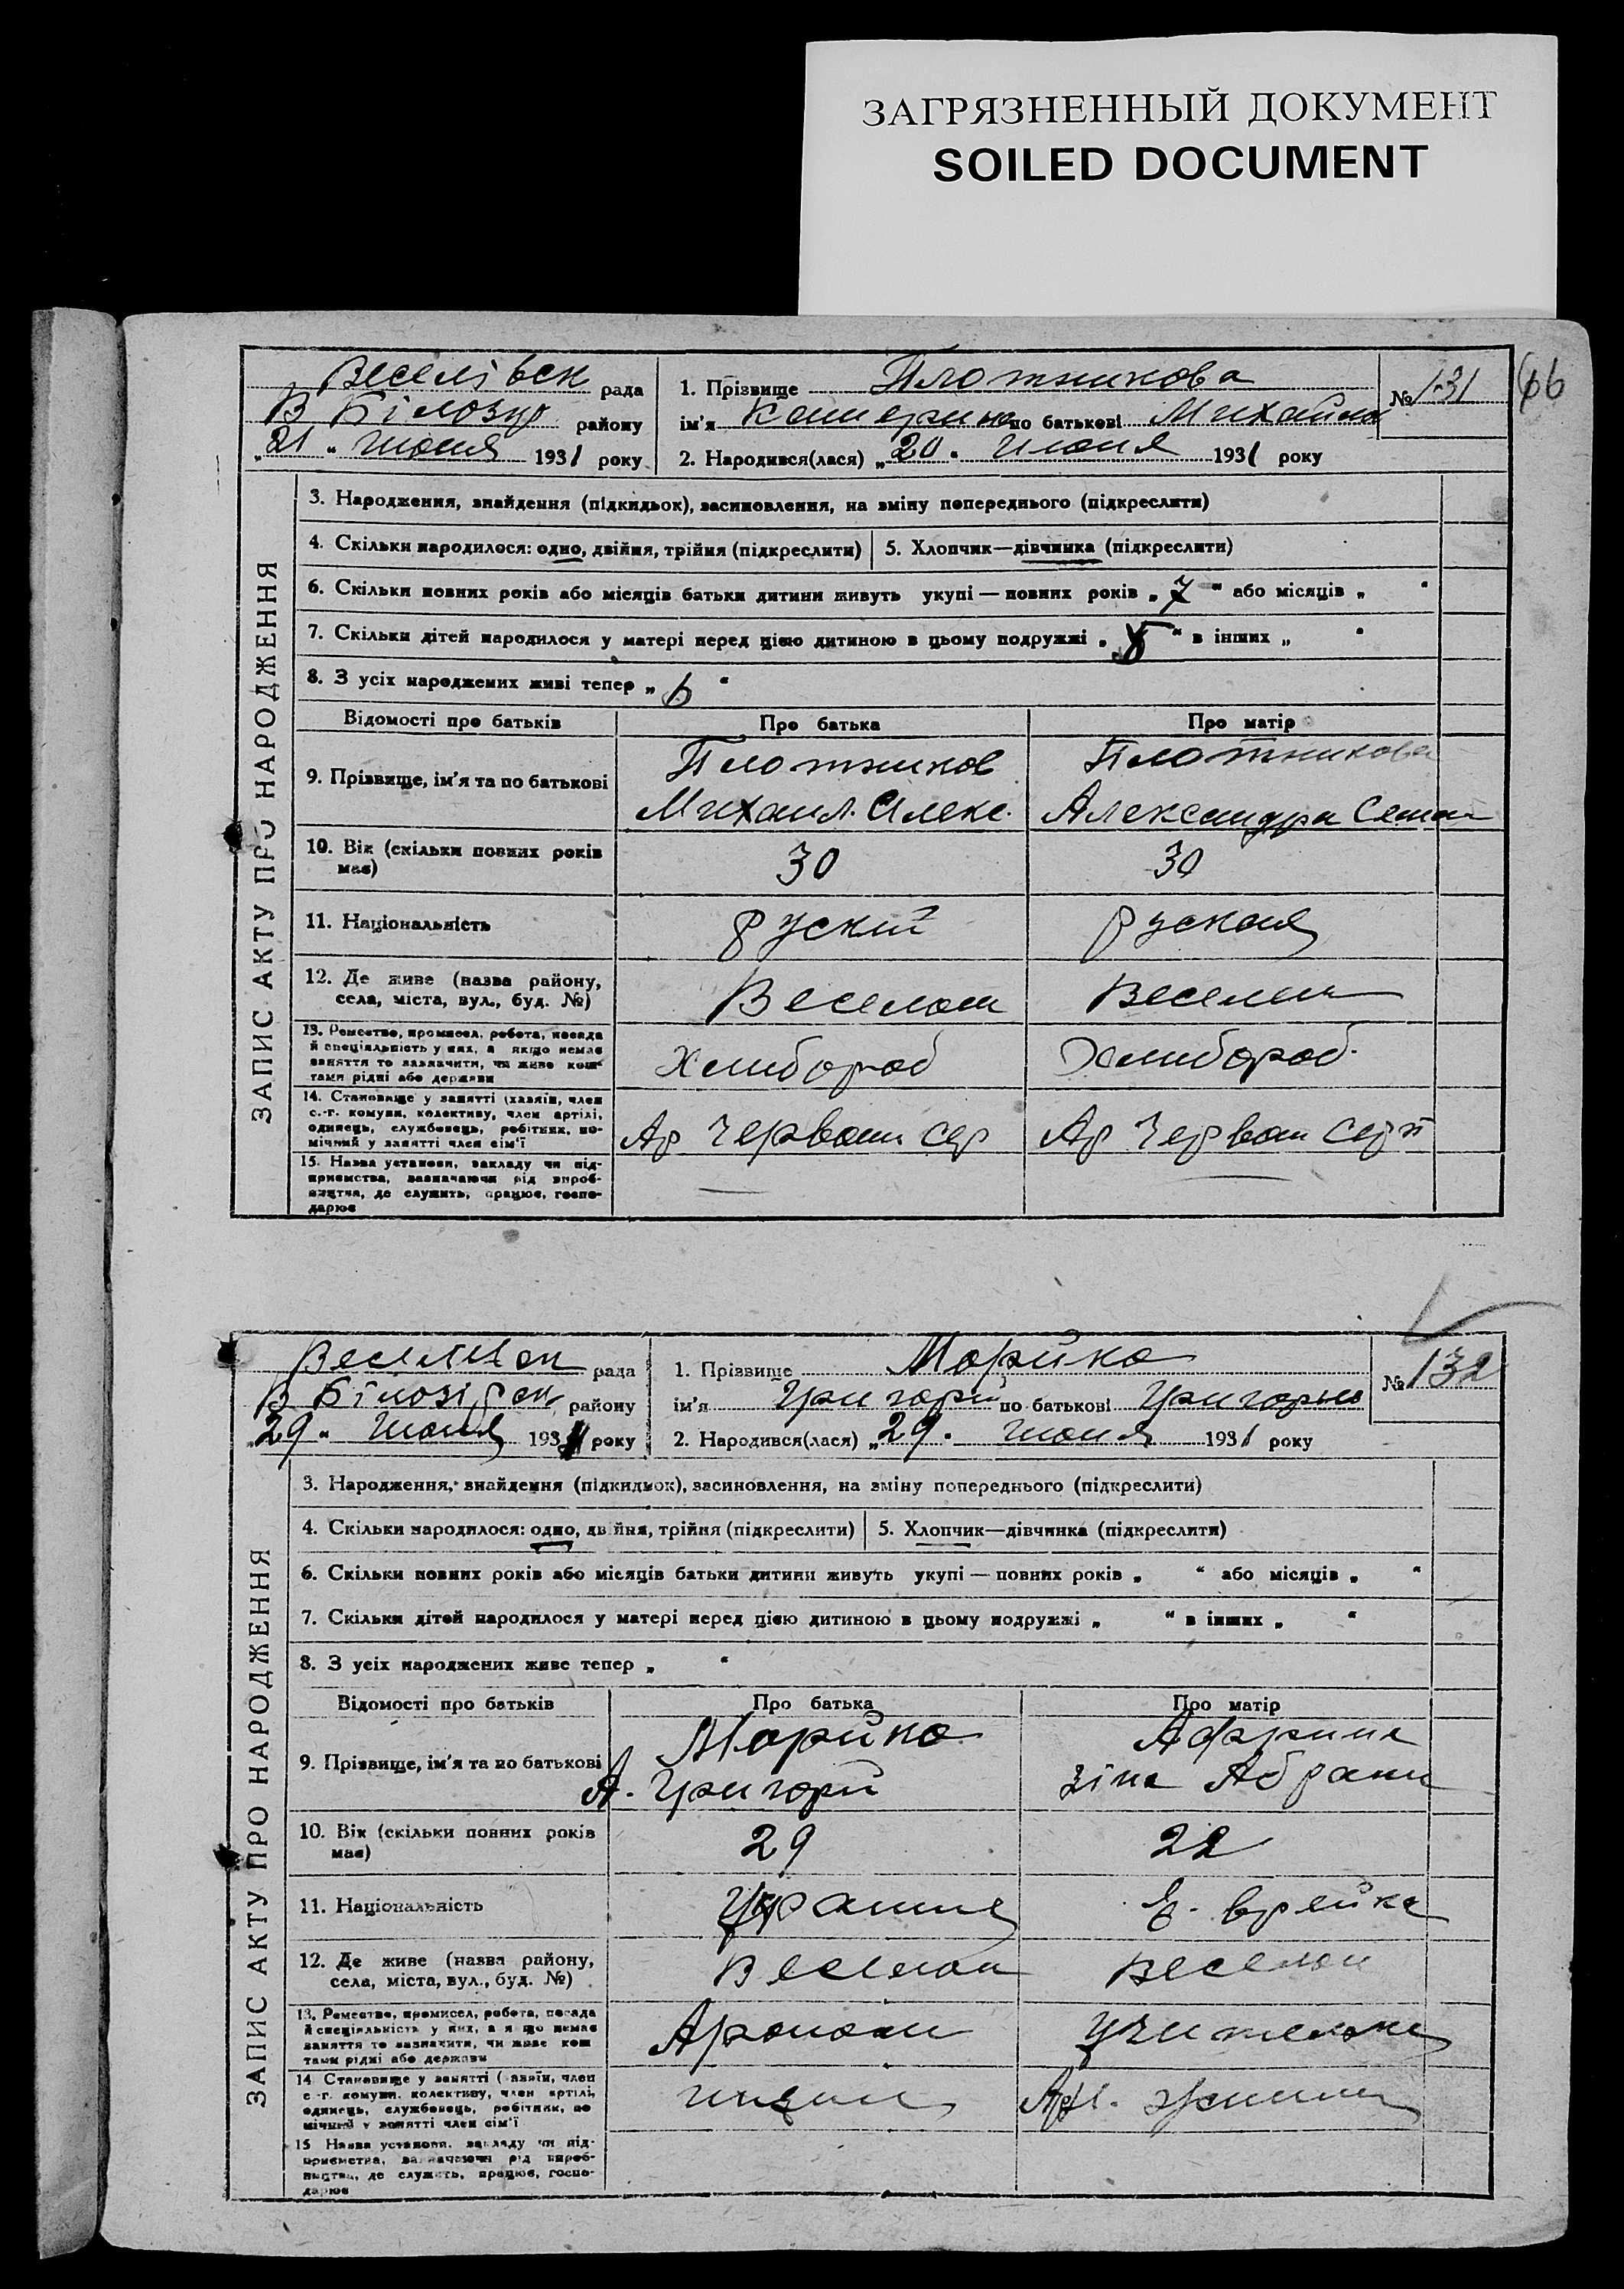 ЗАГРЯЗНЕННЫЙ ДОКУМЕНТ
SOILED DOCUMENT
66
Веселівск рада
В Білозір району
„21“ июня 1931 року
1. Прізвище Плотникова
ім'я Катерина по батькові Михайлов
2. Народився(лася) „20“ июня 1931 року
№ 131
ЗАПИС АКТУ ПРО НАРОДЖЕННЯ
3. Народження, знайдення (підкидьок), засиновлення, на зміну попереднього (підкреслити)
4. Скільки народилося: одно, двійня, трійня (підкреслити) 5. Хлопчик—дівчинка (підкреслити)
6. Скільки повних років або місяців батьки дитини живуть укупі — повних років „7“ або місяців „ “
7. Скільки дітей народилося у матері перед цією дитиною в цьому подружжі „ “ в інших „ “
8. З усіх народжених живі тепер „6“
Відомості про батьків Про батька Про матір
9. Прізвище, ім'я та по батькові
Плотников
Михаил. Алекс.
Плотникова
Александра Семен
10. Вік (скільки повних років
має)
30 30
11. Національність руский руская
12. Де живе (назва району,
села, міста, вул., буд. №)
Веселом Веселом
13. Ремество, промисел, робота, посада
й спеціяльність у них, а якщо немає
заняття то зазначити, чи живе кош-
тами рідні або держави
Хлибороб Хлибороб.
14. Становище у занятті (хазяїн, член
с.-г. комуни, колективу, член артілі,
одинець, службовець, робітник, по-
мічний у занятті член сім'ї
Ар Червони сер Ар Червон серп
15. Назва установи, закладу чи під-
приємства, зазначаючи рід вироб-
ництва, де служить, працює, госпо-
дарює
Веселівск рада
В Білозірск району
„29“ июня 1931 року
1. Прізвище Морийко
ім'я Григорий по батькові Григорьев
2. Народився(лася) „29“ июня 1931 року
№ 132
ЗАПИС АКТУ ПРО НАРОДЖЕННЯ
3. Народження, знайдення (підкидьок), засиновлення, на зміну попереднього (підкреслити)
4. Скільки народилося: одно, двійня, трійня (підкреслити) 5. Хлопчик—дівчинка (підкреслити)
6. Скільки повних років або місяців батьки дитини живуть укупі — повних років „ “ або місяців „ “
7. Скільки дітей народилося у матері перед цією дитиною в цьому подружжі „ “ в інших „ “
8. З усіх народжених живе тепер „ “
Відомості про батьків Про батька Про матір
9. Прізвище, ім'я та по батькові
Морийко
А. Григори
Зіна Абрам
10. Вік (скільки повних років
має)
29 22
11. Національність Украине Е. врейка
12. Де живе (назва району,
села, міста, вул., буд. №)
Веселом Веселом
13. Ремество, промисел, робота, посада
й спеціяльність у них, а якщо немає
заняття то зазначити, чи живе кош
тами рідні або держави
Ароном Учителька
14 Становище у занятті (хазяїн, член
с.-г. комуни, колективу, член артілі,
одинець, службовець, робітник, по
мічний у занятті член сім'ї
15 Назва установи, закладу чи під-
приємства, зазначаючи рід вироб-
ництва, де служить, працює, госпо-
дарює